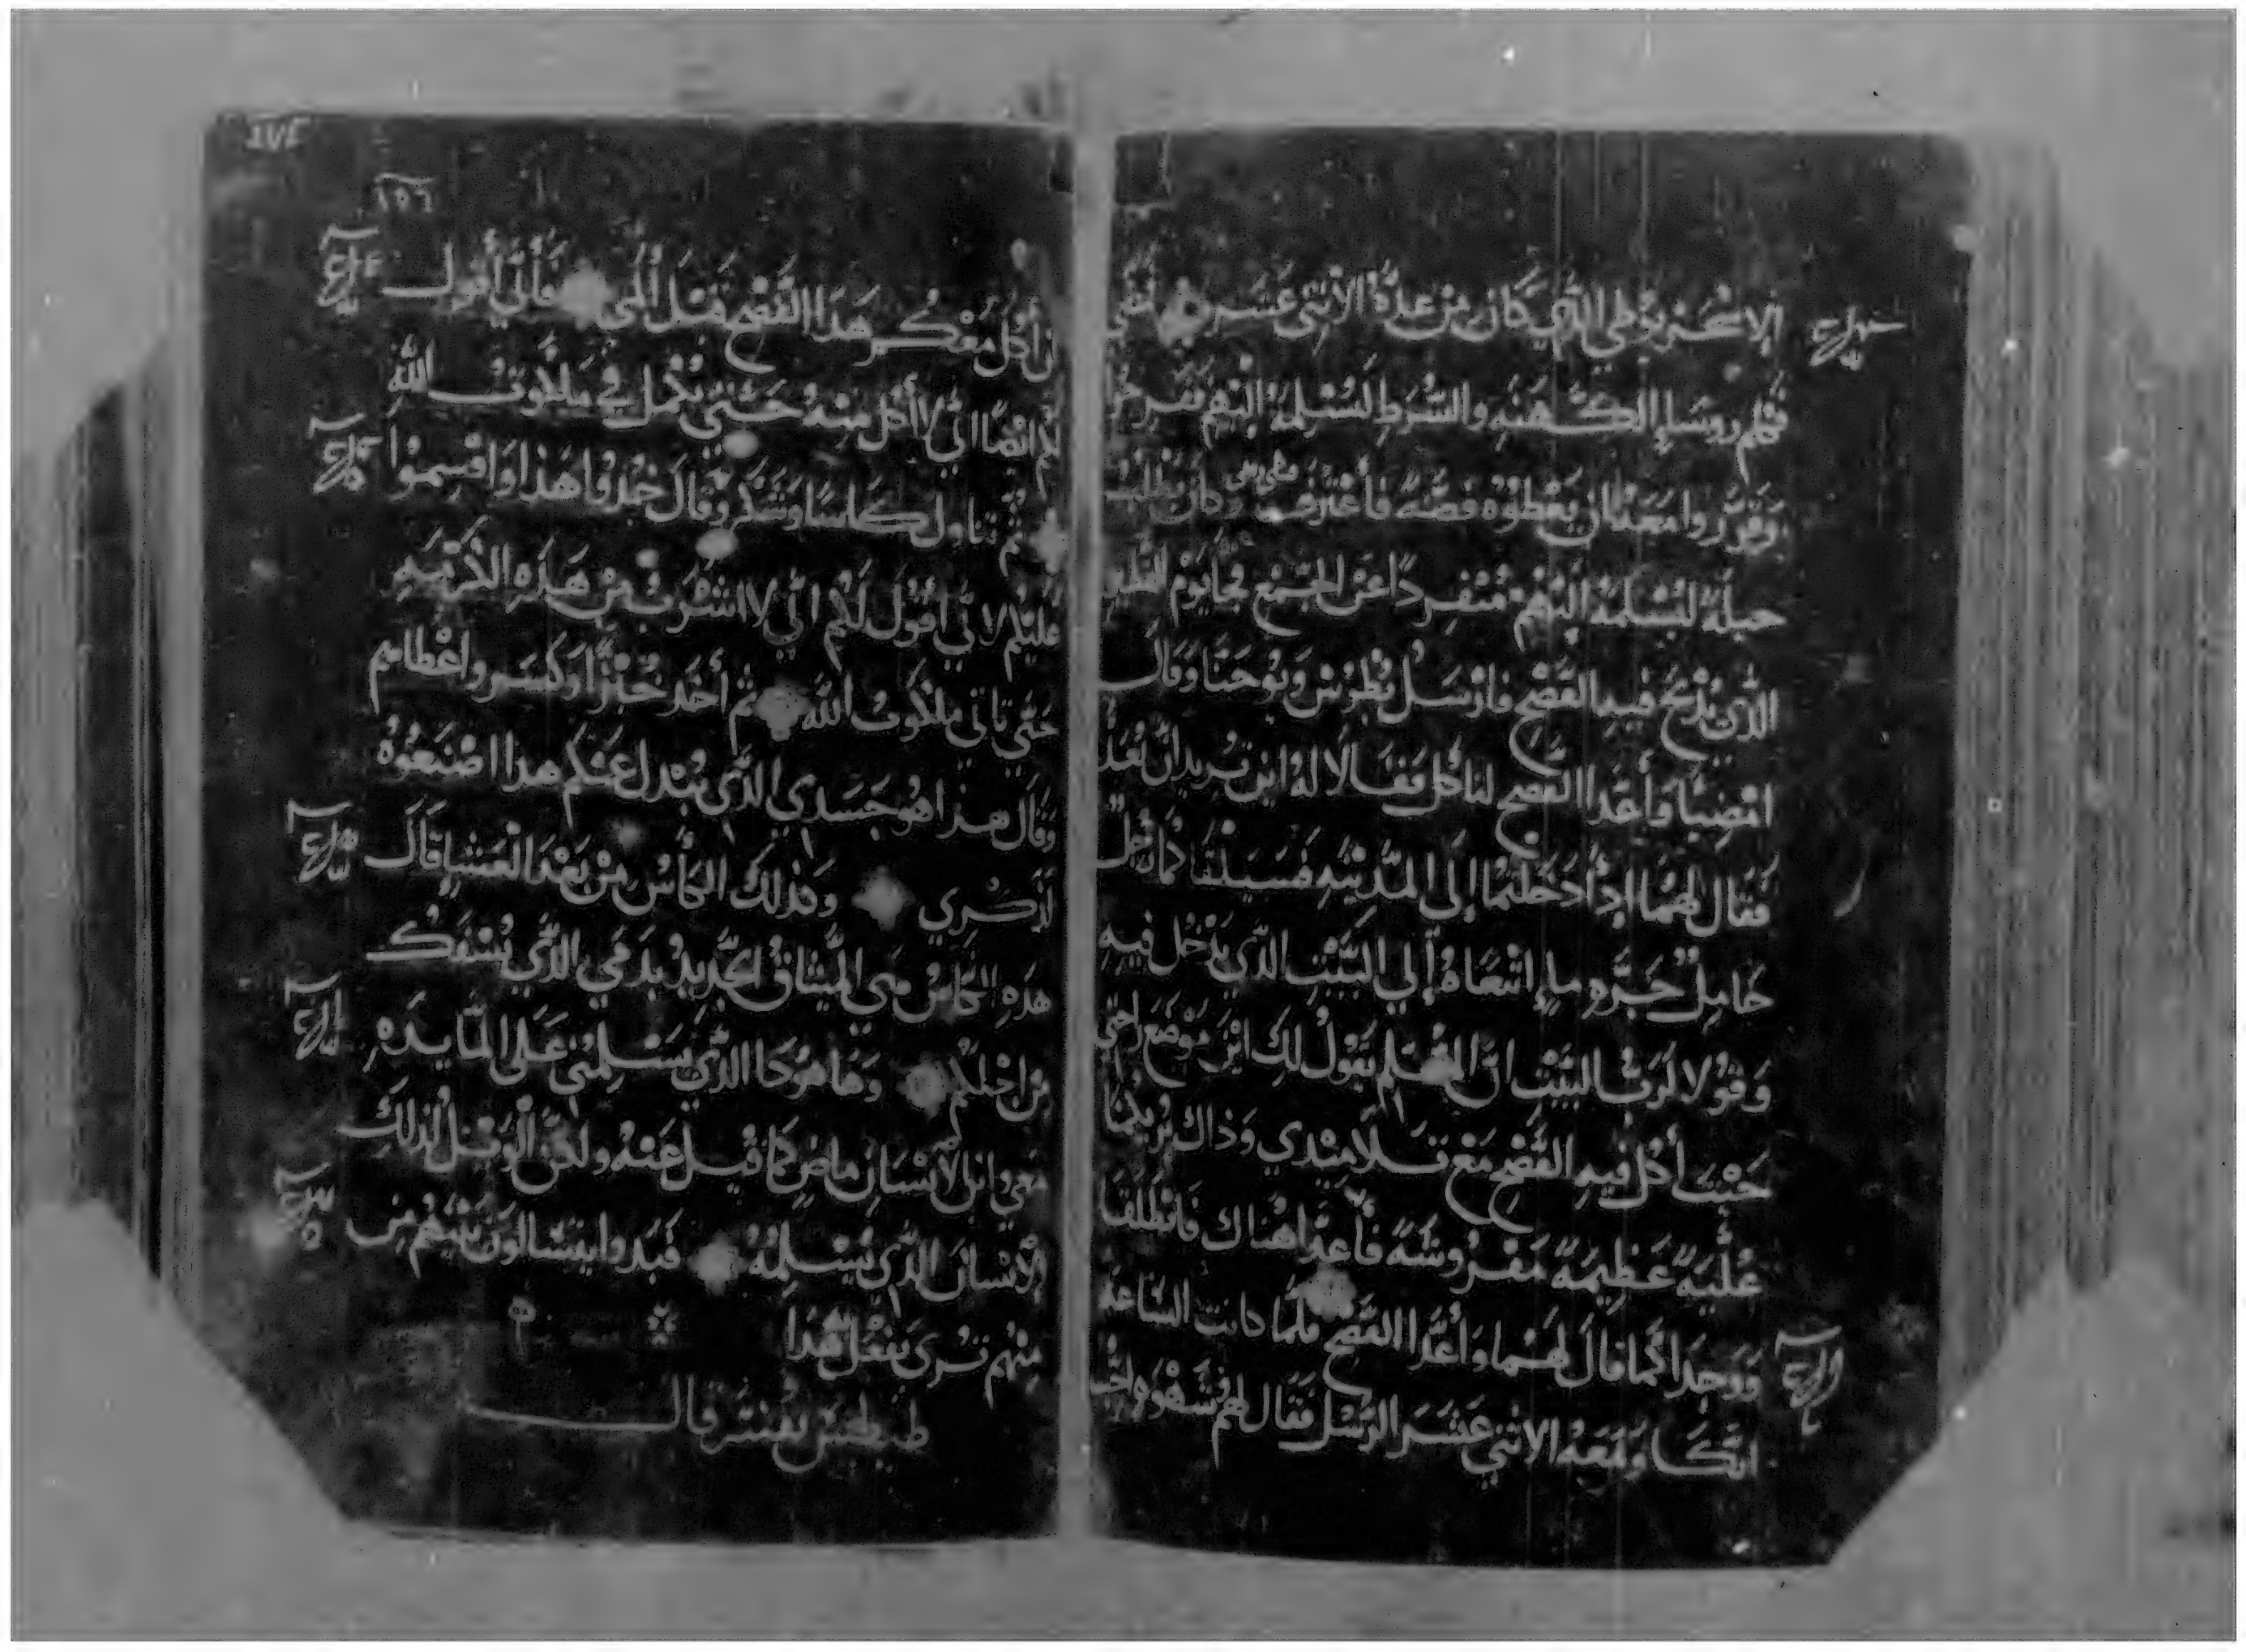 الاسخريوطي الذي كان من عدة الاثني عشر فمضي
فكلم روسا الكهنه والشرط لسلمه اليهم ففرحوا
وقرروا معه ان يعطوه فضه فاعترف وكان يطلب
حيلة ليسلمه اليهم منفردا عن الجمع فجا يوم الفطير
الذي يذبح فيه الفصح فارسل بطرس ويوحنا وقال
امضيا وأعدا الفصح لناكل فقالا له اين تريد ان نعد
فقال لهما اذا دخلتما إلى المدينه فسيلقاكما رجل
حامل جره ما اتبعاه إلي البيت الذي يدخل فيه
وقولا لرب البيت ان المعلم يقول لك اين موضع راحتي
حيث أكل فيه الفصح مع تلاميذي وذاك يريكما
علية عظيمة مفروشة فأعدا هناك فانطلقا
ووجدا كما قال لهما وأعدا الفصح فلما كانت الساعة
اتكا ومعه الاثني عشر الرسل فقال لهم شهوه اشتهيت
١٥٦
ان أكل معكم هذا الفصح قبل المي فأني أقول
لكم ايضا اني لا أكل منه حتي يكمل في ملكوت الله
ثم تناول كاسا وشكر وقال خذوا هذا واقسموا
عليكم لاني أقول لكم اني لا اشرب من هذه الكرمه
حتي تاتي ملكوت الله ثم أخذ خبزا وكسر واعطاهم
وقال هذا هو جسدي الذي يبذل عنكم هذا اصنعوه
لذكري وكذلك الكأس من بعد العشا قال
هذه الكاس هي الميثاق الجديد بدمي الذي يسفك
من اجلكم وها هوذا الذي يسلمني علي المايده
معي وابن الانسان ماض كما قيل عنه ولكن الويل لذلك
الانسان الذي يسلمه فبدوا يتسالون بينهم من
منهم تري يفعل هذا
قال